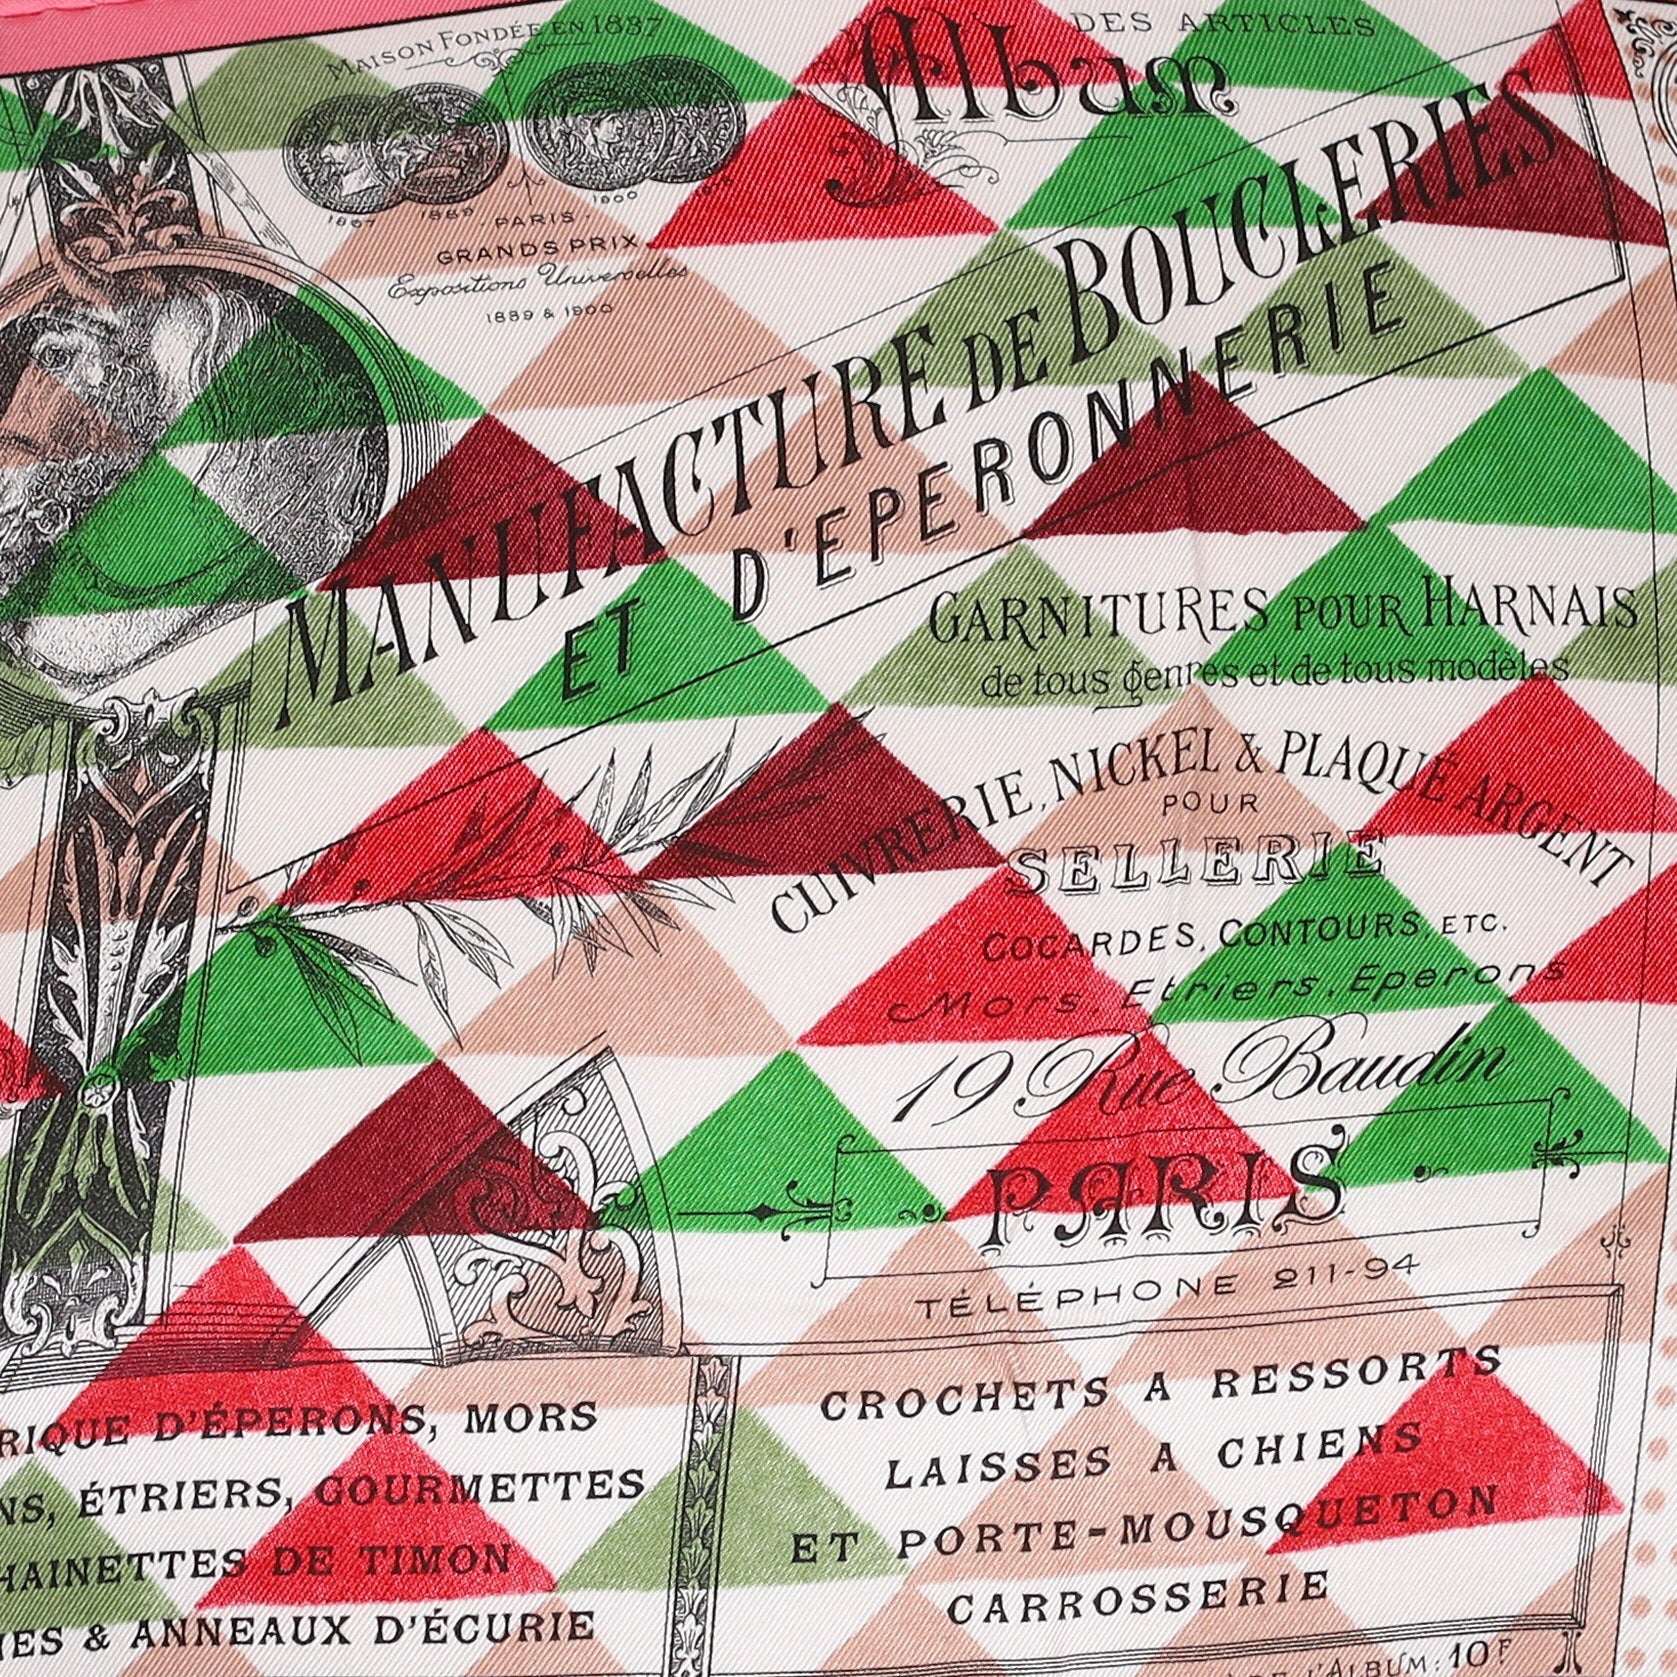 MAISON FONDÉE EN 1837
1867 1889 1900 1878
PARIS
GRANDS PRIX
Expositions Universelles
1889 & 1900
Album
DES ARTICLES
MANUFACTURE DE BOUCLERIES
ET D'EPERONNERIE
GARNITURES POUR HARNAIS
de tous genres et de tous modèles
CUIVRERIE, NICKEL & PLAQUÉ ARGENT
POUR
SELLERIE
COCARDES, CONTOURS, ETC.
Mors, Etriers, Eperons
19 Rue Baudin
PARIS
TÉLÉPHONE 211-94
D'ÉPERONS, MORS
ÉTRIERS, GOURMETTES
DE TIMON
& ANNEAUX D'ÉCURIE
CROCHETS A RESSORTS
LAISSES A CHIENS
ET PORTE-MOUSQUETON
CARROSSERIE
L'ALBUM: 10F